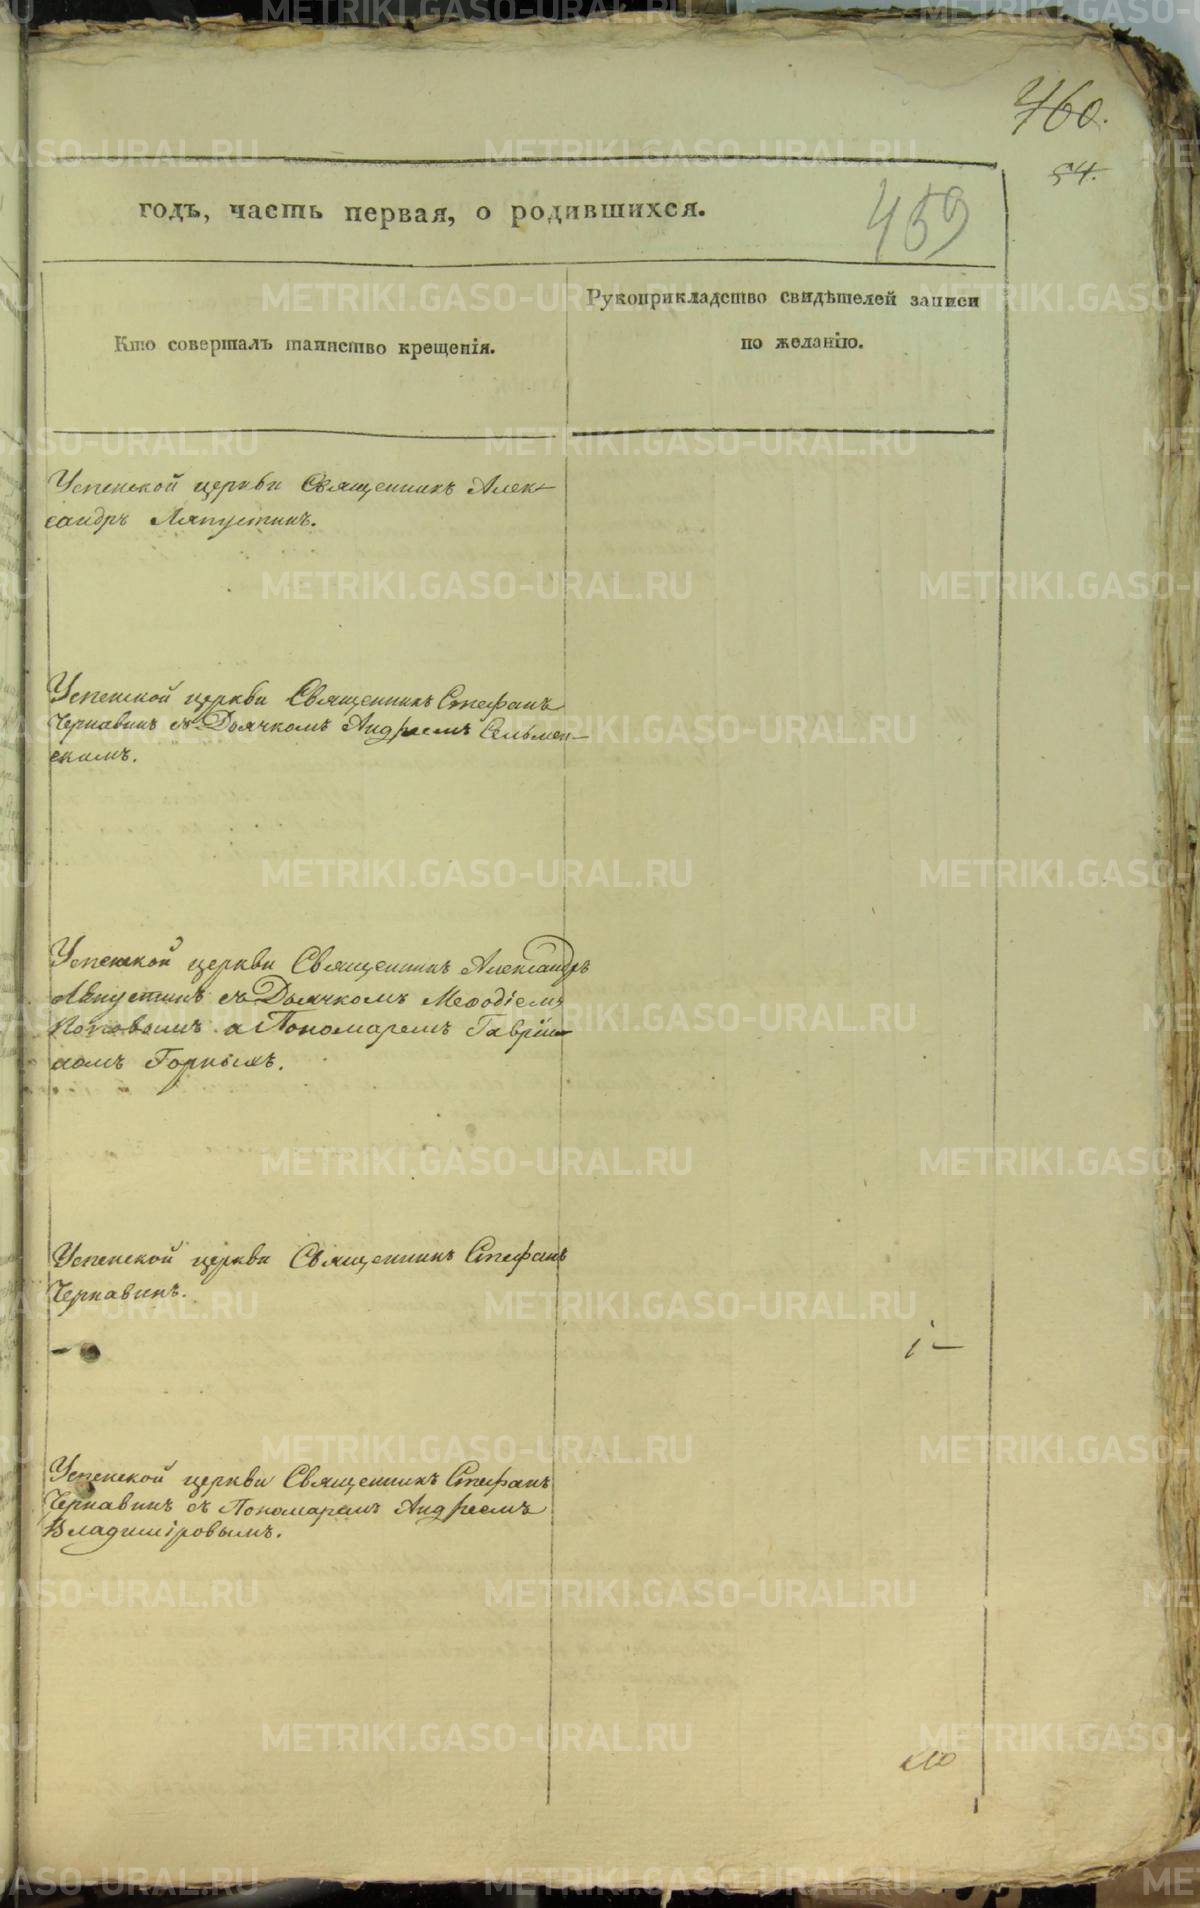 460.
54.
годъ, часть первая, о родившихся.
459
Кто совершалъ таинство крещенія.
Рукоприкладство свидѣтелей записи
по желанію.
Успенской церкви Священникъ Алек-
сандръ Ляпустинъ.
Успенской церкви Священникъ Стефанъ
Чернавинъ съ Дьячкомъ Андреемъ Сельмен-
скимъ.
Успенской церкви Священникъ Александръ
Ляпустинъ съ Дьячкомъ Меѳодіемъ
Поповымъ и Пономаремъ Гаврiи-
ломъ Горныхъ.
Успенской церкви Священникъ Стефанъ
Чернавинъ.
Успенской церкви Священникъ Стефанъ
Чернавинъ съ Пономаремъ Андреемъ
Владиміровымъ.
METRIKI.GASO-URAL.RU